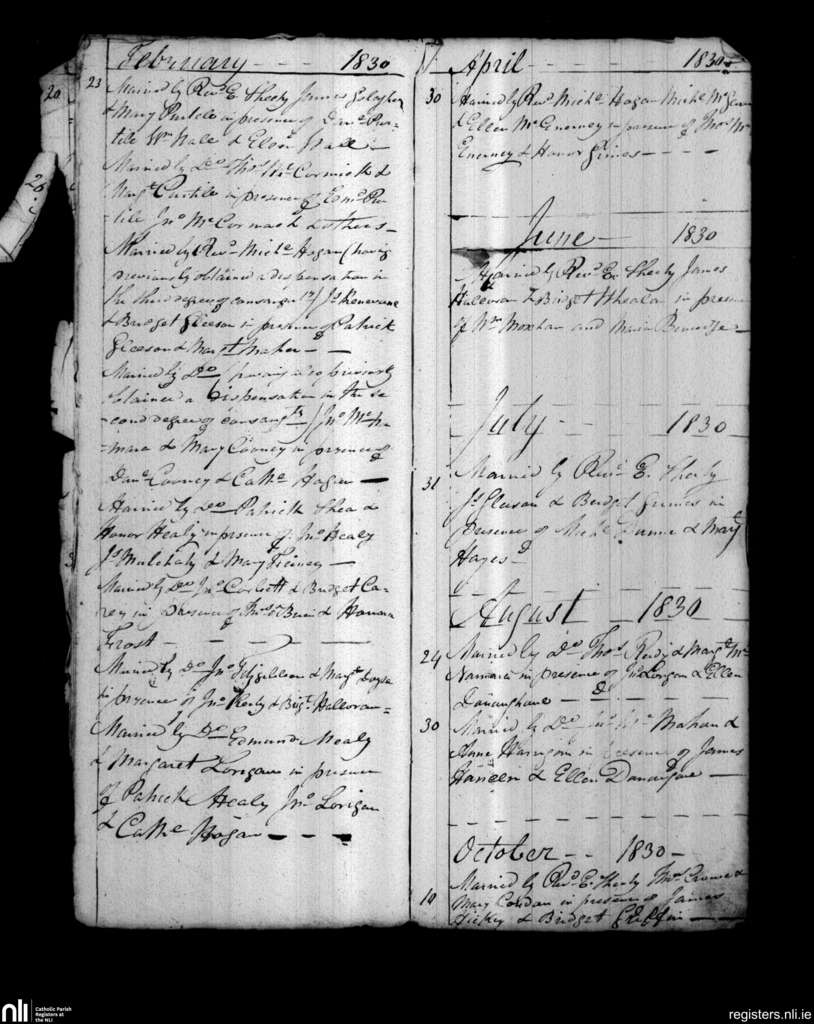 February 1830
23 Married by Revd. E. Sheehy James Gelagher
& Mary Purtile in presence of Danl. Pur-
tile Wm Nale & Ellen
Married by Do Thos. McCormick &
Margt. Purtile in presence of Edmd. Pur-
tile Jno. McCormack & others
Married by Revd. Michl. Hogan (having
previously obtained a dispensation in
the third degree of consangty) Js.
& Bridget Gleeson in presence of Patrick
Gleeson & Margt. Maher
Married by Do (having also previously
obtained a dispensation in the se
cond degree of consangty) Jno. McNa
mara & Mary Cooney in presence of
Danl. Cooney & Cathe Hogan
Married by Do Patrick Shea &
Honor Healy in presence of Jno. Healy
Js. Mulchaly & Mary Tierney
Married by Do Jno. Corbett & Bridget Ca-
rey in presence of O'Brien & Hanora
Frost
Married by Do Jno. Fitzgibbon & Margt.
in presence of Jno. & Brigt. Halloran
Married by Do Edmund Mealy
& Margaret Lorigan in presence
of Patrick Healy Jno. Lorigan
& Cathe Hogan
20
26
April 1830
30 Married by Revd. Michl. Hogan Michl.
& Ellen McEnerney in presence of Thos. Mc
Enerney & Honor Grimes
June 1830
Married by Revd. E. Sheehy James
Halloran & Bridget Whealan in presence
of Wm and Maria
July 1830
31 Married by Revd. E. Sheehy
Js. Gleeson & Bridget Grimes in
presence of Michl. & Mary
Hayes
August 1830
24 Married by Do Thos. Reidy & Margt. Mc
Namara in presence of Jno. Lorigan & Ellen
Danaughane
30 Married by Do Mc Mahan &
Anne in presence of James
& Ellen
October 1830
10 Married by Revd. E. Sheehy Thos. Crowe &
Mary Condan in presence of James
Hickey & Bridget Griffin
nli Catholic Parish
Registers at
the NLI
registers.nli.ie